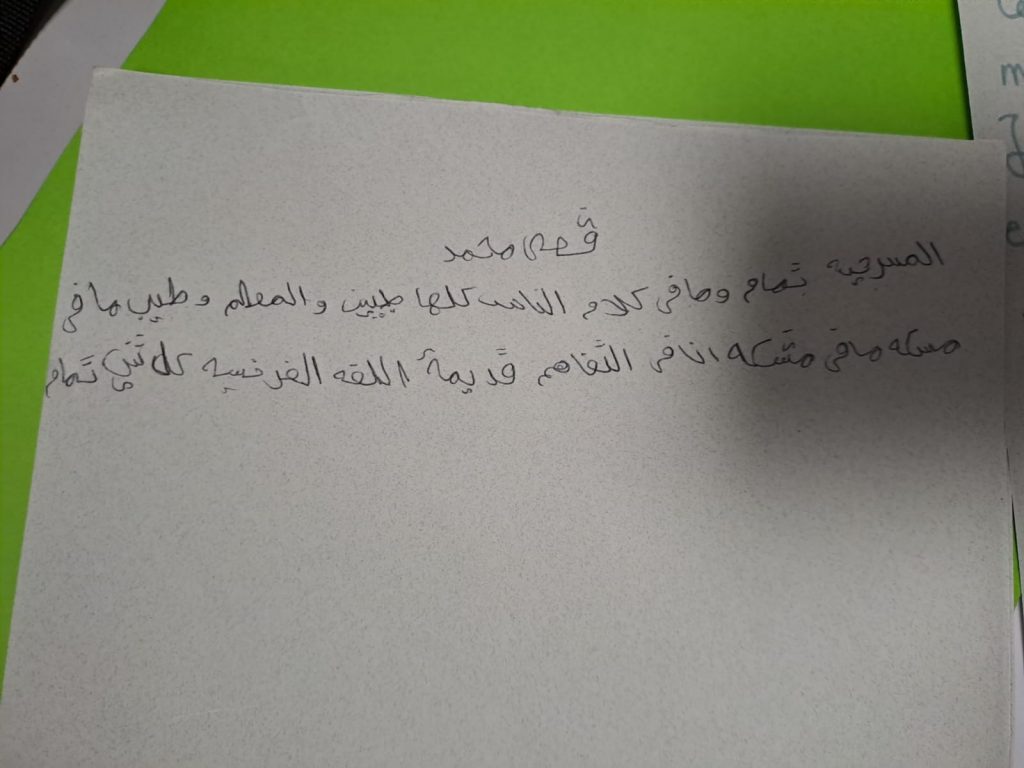 قصي محمد
المسرحية تمام وما في كلام الناس كلها طيبين والمعلم وطيب ما في
مسكله ما في مشكله انا في التفاهم قديمة اللقه الفرنسيه كل شي تمام
m
e